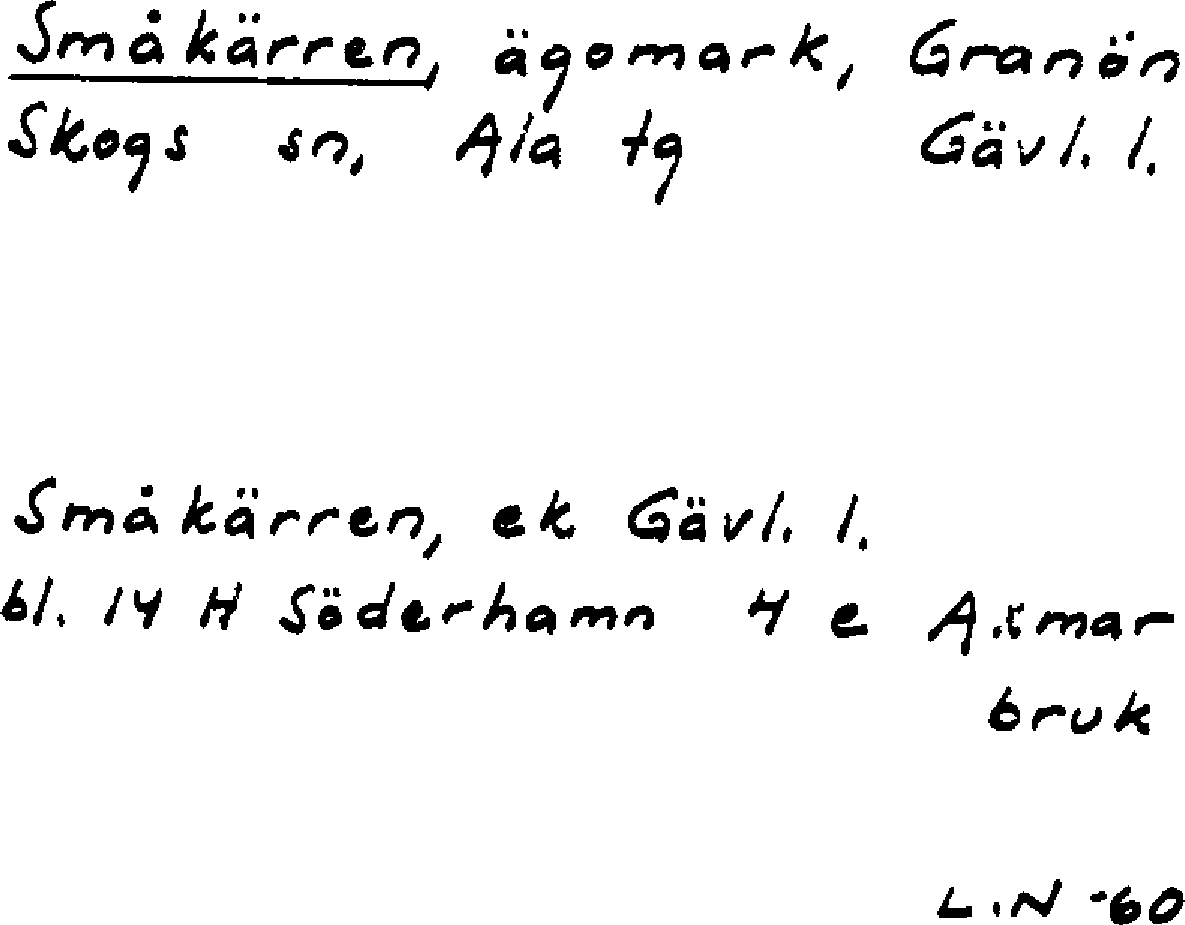 Småkärren, ägomark, Granön
Skogs sn, Ala tg Gävl. l.
Småkärren, ek Gävl. l.
bl. 14 H Söderhamn 4 e Axmar
bruk
L.N -60